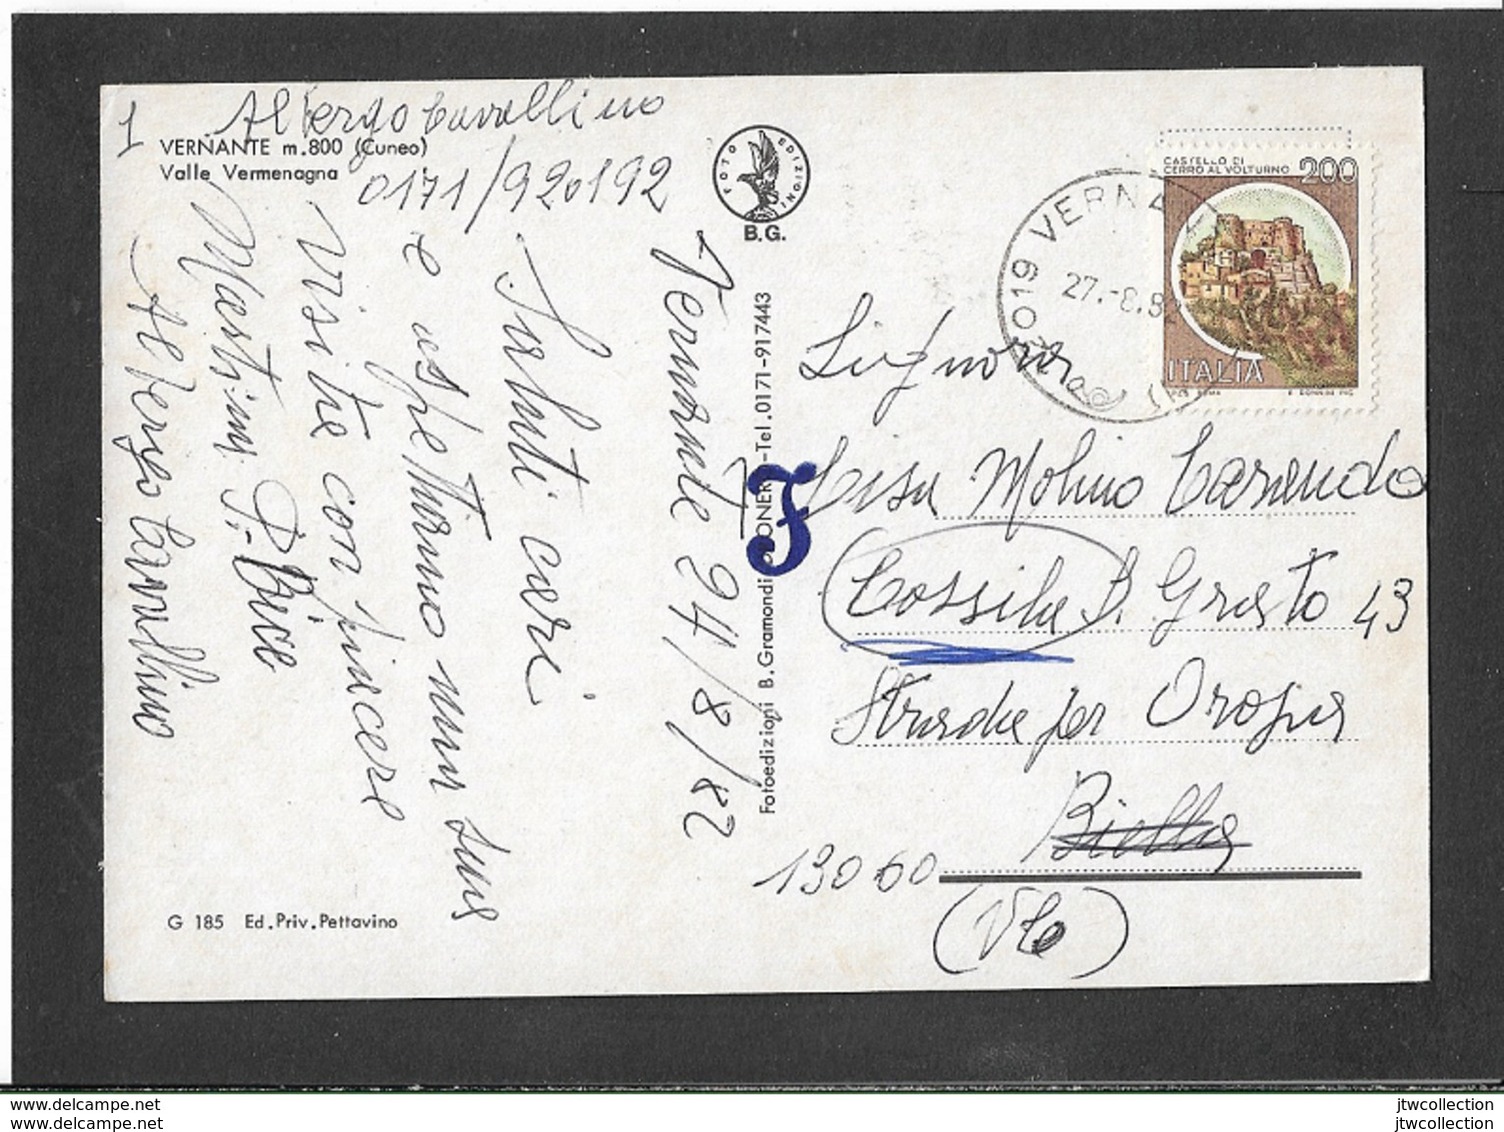 1 Albergo Cavallino
VERNANTE m.800 (Cuneo)
Valle Vermenagna
0171/920192
Vernante 24/8/82
Saluti cari
e aspettiamo una sua
visita con piacere
Martini P. Bice
Albergo Cavallino
G 185 Ed.Priv.Pettavino
FOTO EDIZIONI
B.G.
Fotoedizioni B. Gramondi - Tel. 0171-917443
CASTELLO DI
CERRO AL VOLTURNO 200
ITALIA
12019 VERNANTE
27.-8.82
Signora
Lisa Molino Carando
Cossila S. Grato 43
Strada per Oropa
Biella
13060
(Vc)
delcampe.net
delcampe.net
jtwcollection
jtwcollection